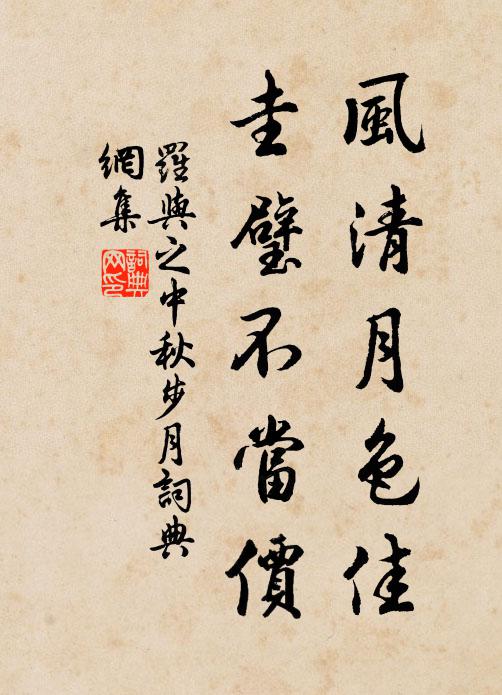 風清月色佳
圭璧不當價
羅與之中秋步月詞典
網集
詞典
网印